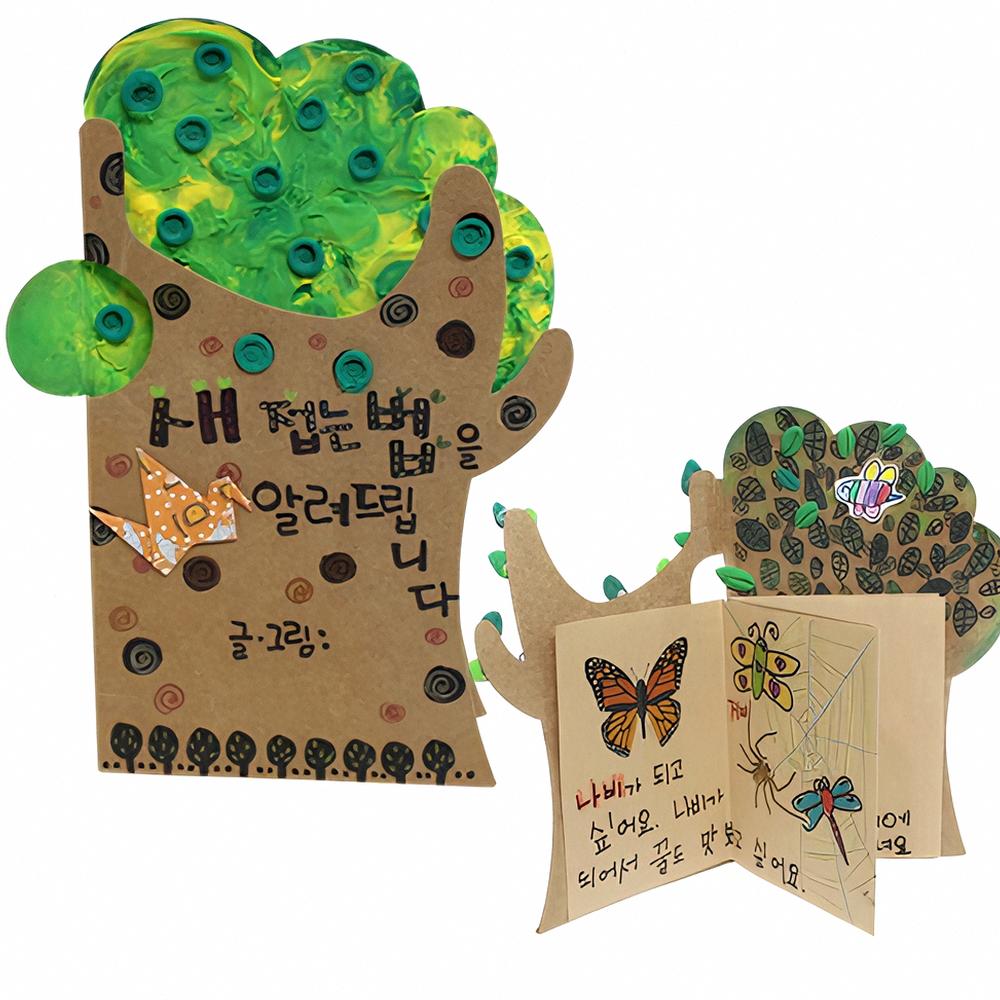 새 접는 법을
알려드립
니
다
글·그림:
나비가 되고
싶어요. 나비가
되어서 꿀도 맛보고 싶어요.